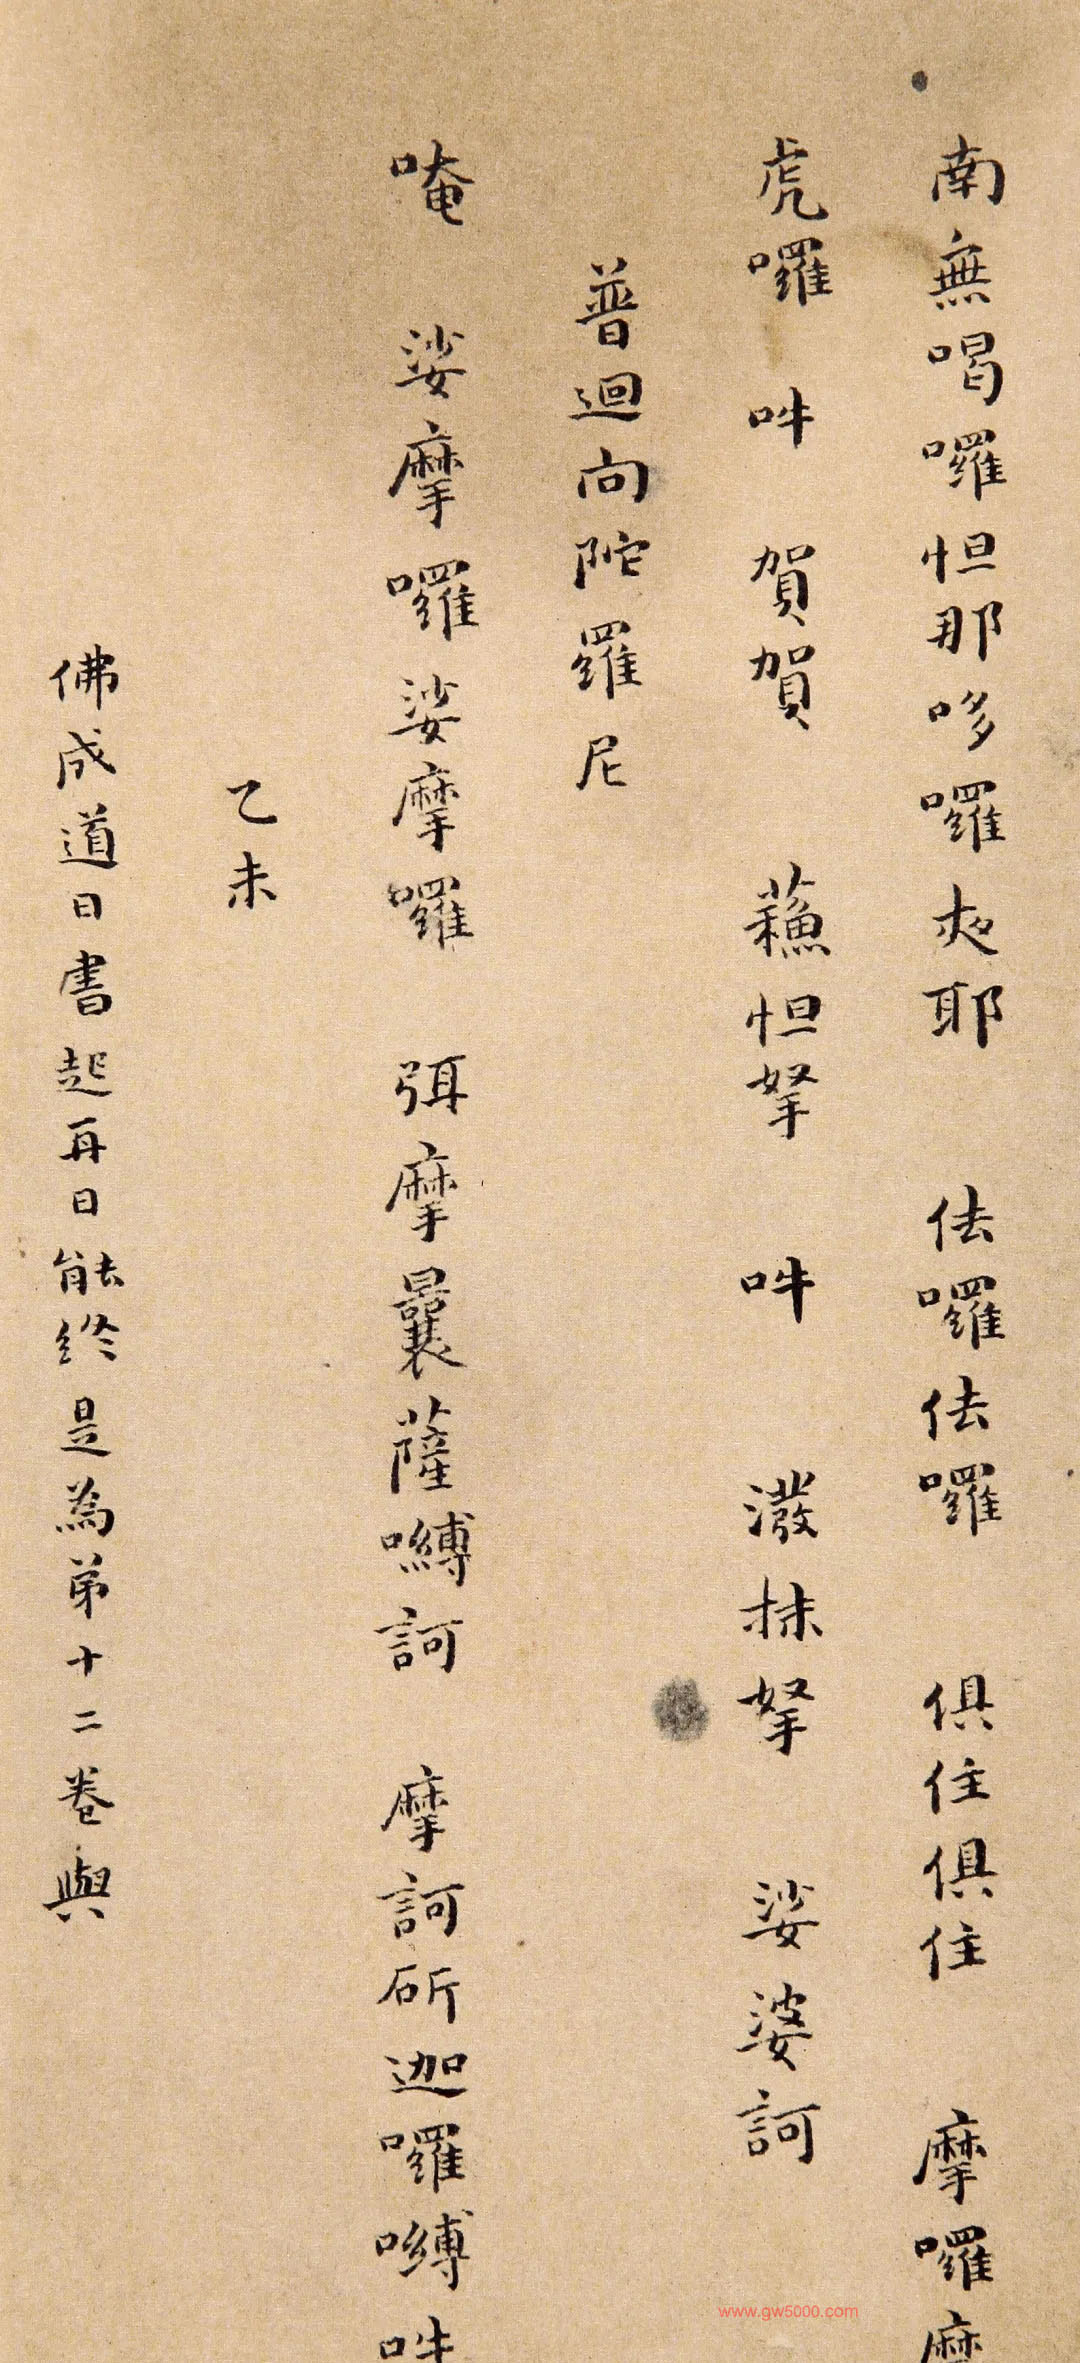 南無喝囉怛那哆囉夜耶 佉囉佉囉 俱住俱住 摩囉摩
虎囉 吽 賀賀 蘓怛拏 吽 潑抹拏 娑婆訶
普迴向陀羅尼
唵 娑摩囉娑摩囉 弭摩曩薩嚩訶 摩訶斫迦囉嚩吽
乙未
佛成道日書起再日能終是為弟十二卷與
www.gw5000.com